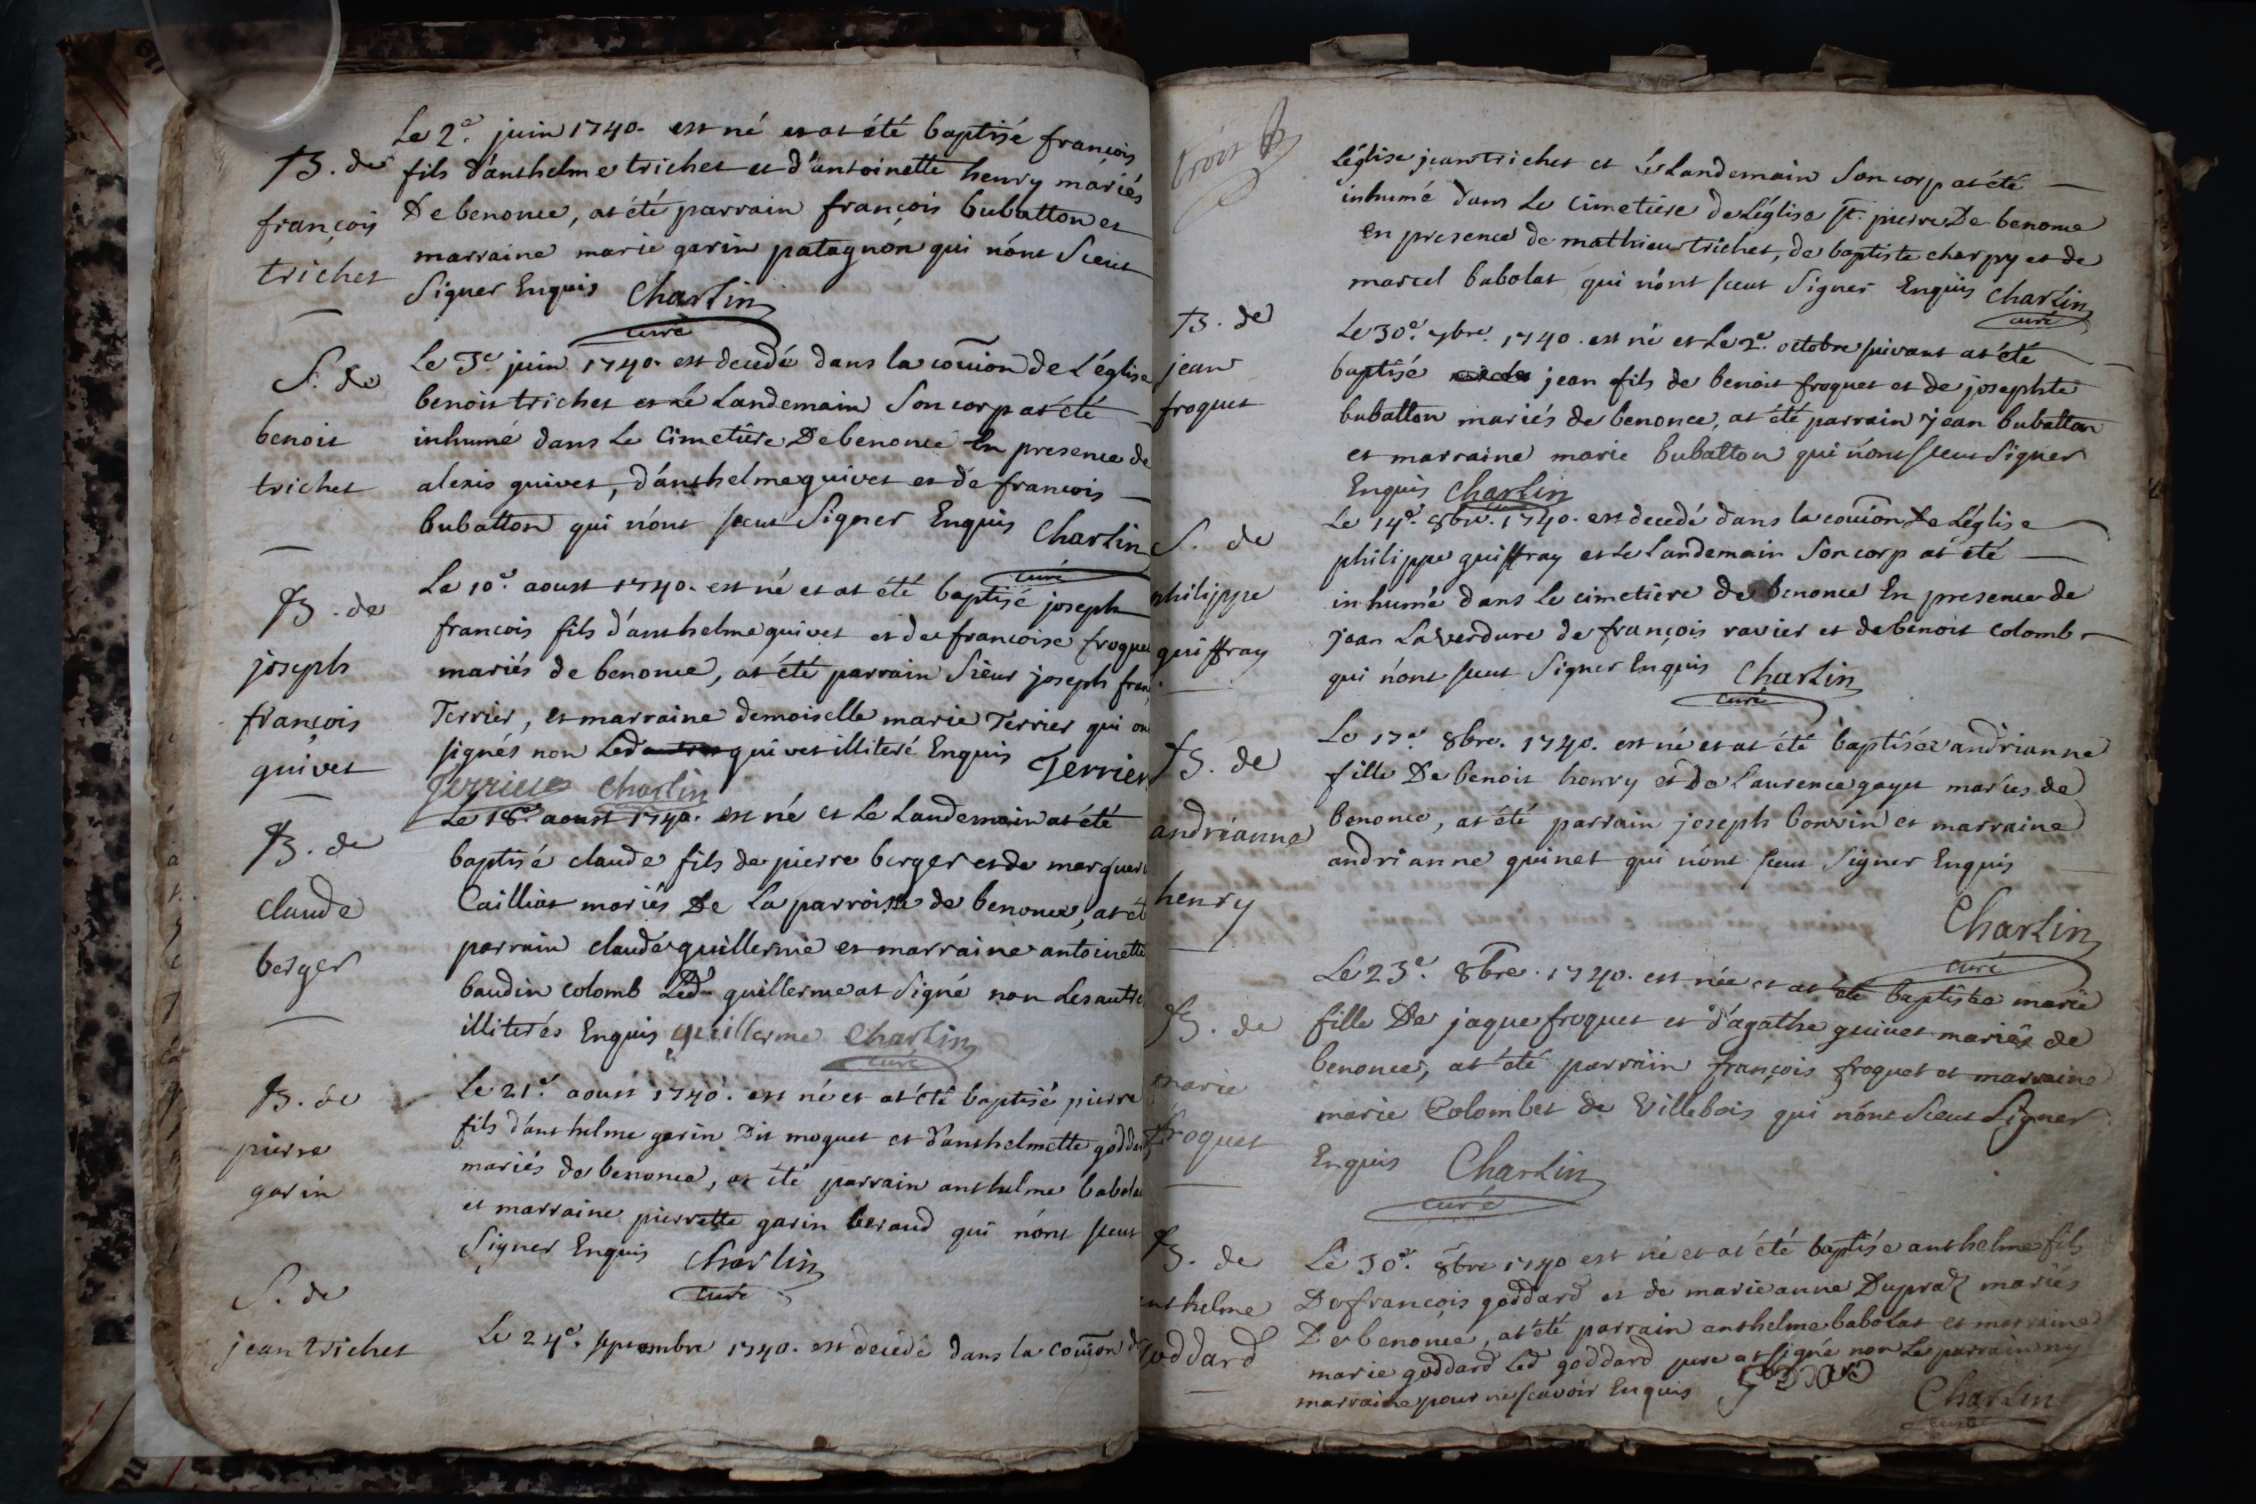 Le 2e. juin 1740. est né et at été baptisé françois
B. de
fils d'anthelme trichet et d'antoinette henry mariés
françois
De benonce, at été parrain françois bubatton et
trichet
marraine marie garin patagnon qui n'ont sceut
signer Enquis Charlin
curé
S. de
Le 3e juin 1740. est decedé dans la coûion de L'église
benoit trichet et Le Landemain son corp at été
benoit
inhumé dans Le Cimetiere De benonce En presence de
trichet
alexis quivet, d'anthelme quivet et de francois
bubatton qui n'ont sceut signer Enquis Charlin
curé
B. de
Le 10e. aoust 1740. est né et at été baptisé joseph
joseph
francois fils d'anthelme quivet et de francoise froquet
françois
mariés de benonce, at été parrain sieur joseph fran
quivet
Terrier, et marraine demoiselle marie Terrier qui on
signés non Led quivet illiteré Enquis Terrier
Terrier Charlin
B. de
Le 18e. aoust 1740. est né et Le Landemain at été
claude
baptisé claude fils de pierre berger et de margueri
berger
Cailliat mariés De La parroisse de benonce, at ét
parrain claude guillerme et marraine antoinette
baudin colomb Led guillerme at signé non Les autre
illiterés Enquis guillerme Charlin
curé
B. de
Le 21e. aoust 1740. est né et at été baptisé pierre
pierre
fils d'anthelme garin Dit moquet et d'anthelmette godda
garin
mariés de benonce, at été parrain anthelme babola
et marraine pierrette garin beraud qui n'ont sceut
signer Enquis Charlin
curé
S. de
jean trichet
Le 24e. septembre 1740. est decedé dans la coûion de
trois
L'église jean trichet et Le Landemain son corp at été
inhumé dans Le Cimetiere de L'église st. pierre De benonce
en presence de mathieu trichet, de baptiste charpy et de
marcel babolat qui n'ont sceut signer Enquis Charlin
curé
B. de
jean
froquet
Le 30e. 7bre. 1740. est né et Le 2e. octobre suivant at été
baptisé jean fils de benoit froquet et de josephte
bubatton mariés de benonce, at été parrain jean bubatton
et marraine marie bubatton qui n'ont sceut signer
Enquis Charlin
S. de
philippe
guiffray
Le 14e. 8bre. 1740. est decedé dans la coûion De L'église
philippe guiffray et Le Landemain son corp at été
inhumé dans Le cimetiere de benonce En presence de
jean Laverdure de françois ravier et de benoit colomb
qui n'ont sceut signer Enquis Charlin
curé
B. de
andrianne
henry
Le 17e. 8bre. 1740. est né et at été baptisée andrianne
fille De benoit henry et de Laurence gayet mariés de
benonce, at été parrain joseph bonvin et marraine
andrianne guinet qui n'ont sceut signer Enquis
Charlin
curé
B. de
marie
froquet
Le 23e. 8bre. 1740. est née et at été baptisée marie
fille De jaque froquet et d'agathe quivet mariés de
benonce, at été parrain françois froquet et marraine
marie Colombet de Villebois qui n'ont sceut signer
Enquis Charlin
curé
B. de
anthelme
goddard
Le 30e. 8bre 1740 est né et at été baptisé anthelme fils
De françois goddard et de marie anne Dupraz mariés
De benonce, at été parrain anthelme babolat et marraine
marie goddard Led goddard pere at signé non Le parrain ny
marraine pour ne scavoir Enquis
Charlin
curé